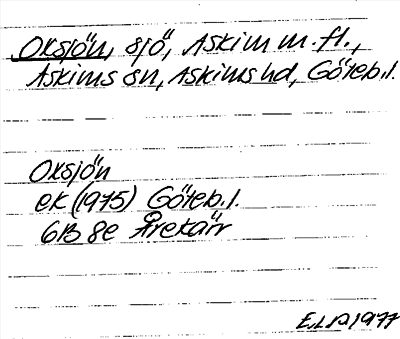 Oksjön, sjö, Askim m.fl.,
Askims sn, Askims hd, Göteb.l.
Oksjön
ek (1975) Göteb.l.
6B 8e Årekärr
1977